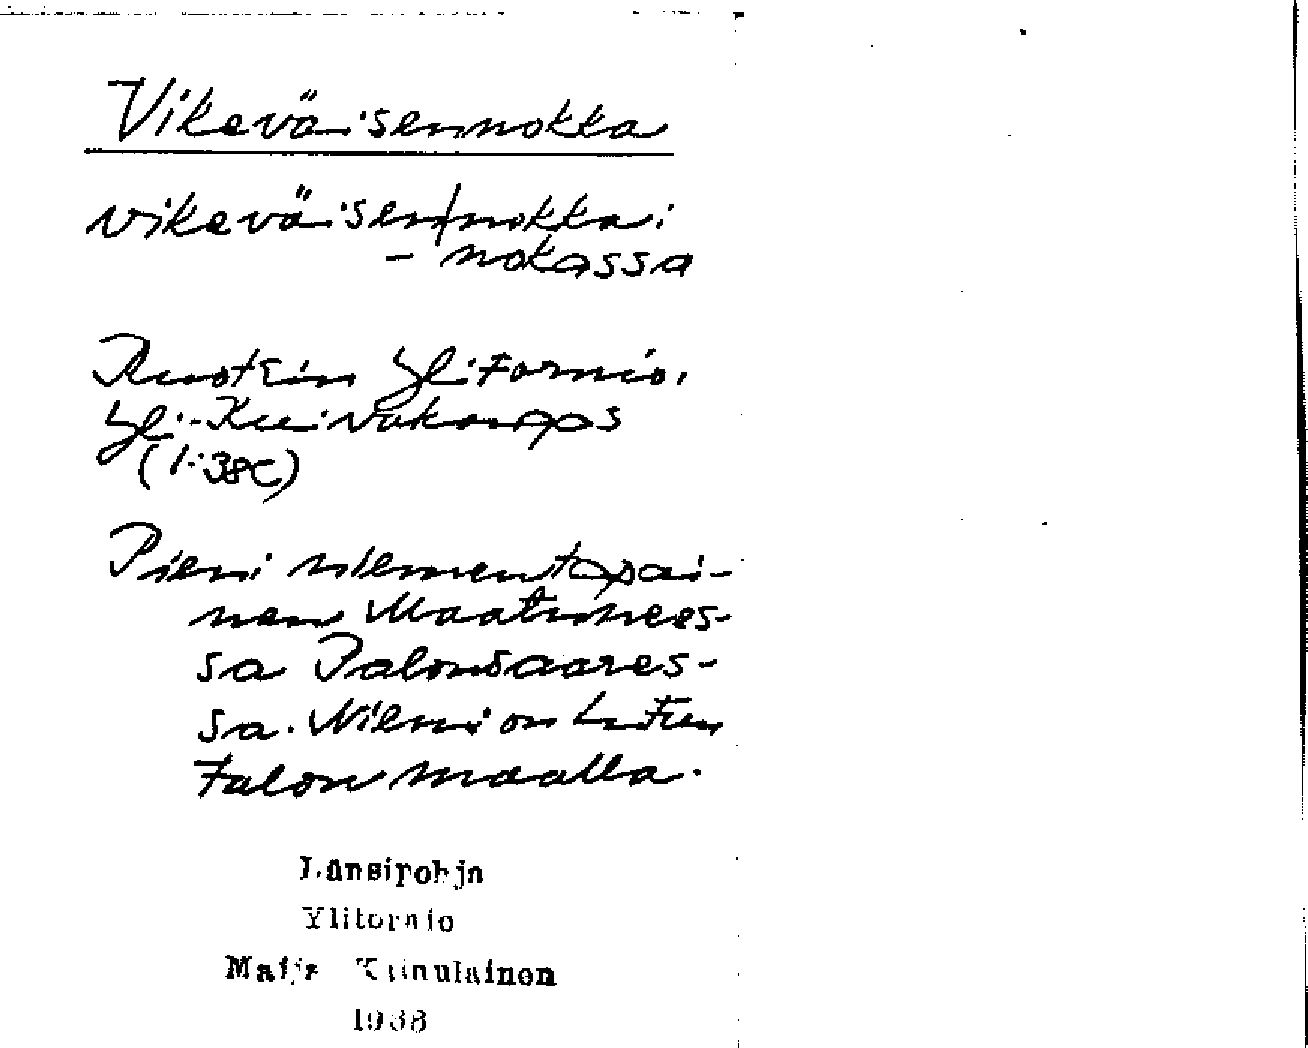 Vikeväisennokka
vikeväisen|nokka:
- nokassa
Ruotsin Ylitornio,
Yli-Kuivakangas
(1:38C)
Pieni niementapai-
nen Maatuness-
sa Palonsaares-
sa. Niemi on
talon maalla.
Länsipohja
Ylitornio
Maija Kiinulainen
1968